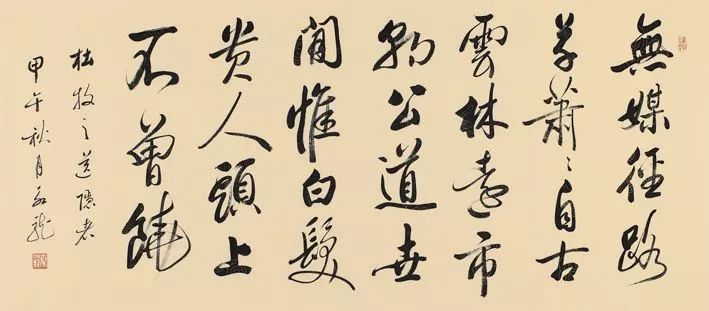 無媒徑路
草蕭〻自古
雲林遠市
朝公道世
間惟白髮
貴人頭上
不曾饒
杜牧之送隱者
甲午秋月龍